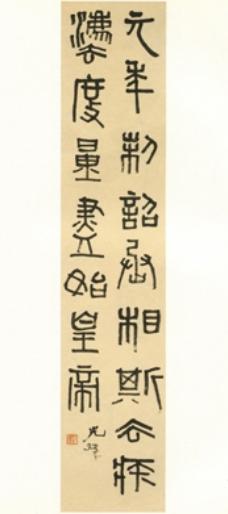 元年制詔丞相斯去疾
灋度量盡始皇帝